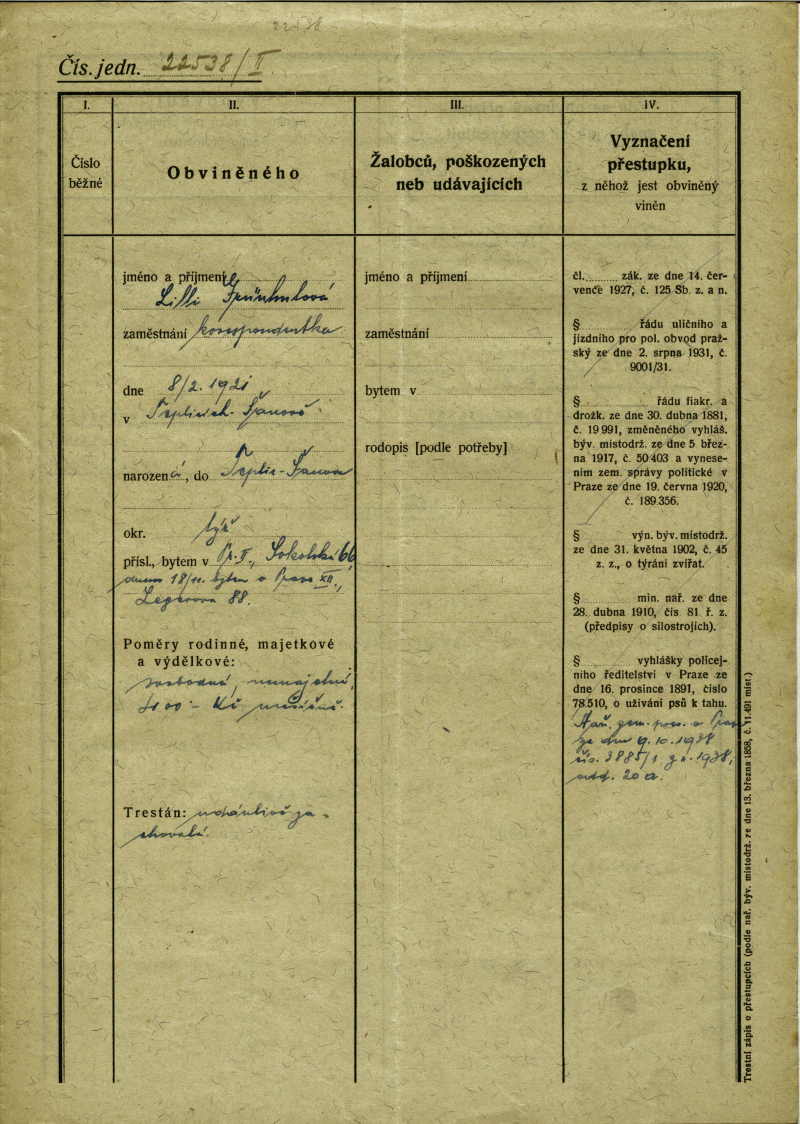 22538
Čís. jedn. 22538/II
I.
Číslo
běžné
II.
Obviněného
III.
Žalobců, poškozených
neb udávajících
IV.
Vyznačení
přestupku,
z něhož jest obviněný
viněn
jméno a příjmení
Lilli
zaměstnání korespondentka
dne 8/2. 1921
v Teplicích-Šanově
narozená, do Teplic-Šanova
okr. týž
přísl., bytem v Pr. II., Sokolská 66
dnem 18/11. bytem v Praze XII.,
Legerova 88.
Poměry rodinné, majetkové
a výdělkové:
svobodná, nemajetná,
Kč měsíčně.
Trestán: zachovalá.
jméno a příjmení
zaměstnání
bytem v
rodopis [podle potřeby]
čl. zák. ze dne 14. čer-
vence 1927, č. 125 Sb. z. a n.
§ řádu uličního a
jízdního pro pol. obvod praž-
ský ze dne 2. srpna 1931, č.
9001/31.
§ řádu fiakr. a
drožk. ze dne 30. dubna 1881,
č. 19 991, změněného vyhláš.
býv. místodrž. ze dne 5 břez-
na 1917, č. 50 403 a vynese-
ním zem. správy politické v
Praze ze dne 19. června 1920,
č. 189.356.
§ výn. býv. místodrž.
ze dne 31. května 1902, č. 45
z. z., o týrání zvířat.
§ min. nař. ze dne
28. dubna 1910, čís 81. ř. z.
(předpisy o silostrojích).
§ vyhlášky policej-
ního ředitelství v Praze ze
dne 16. prosince 1891, číslo
78.510, o užívání psů k tahu.
Nař. zem. pres. v Praze
ze dne 9. 10. 1938
čís. 3885/1 z r. 1938,
odd. 20 a.
Trestní zápis o přestupcích (podle nař. býv. místodrž. ze dne 13. března 1858, č. 11.491 míst.)